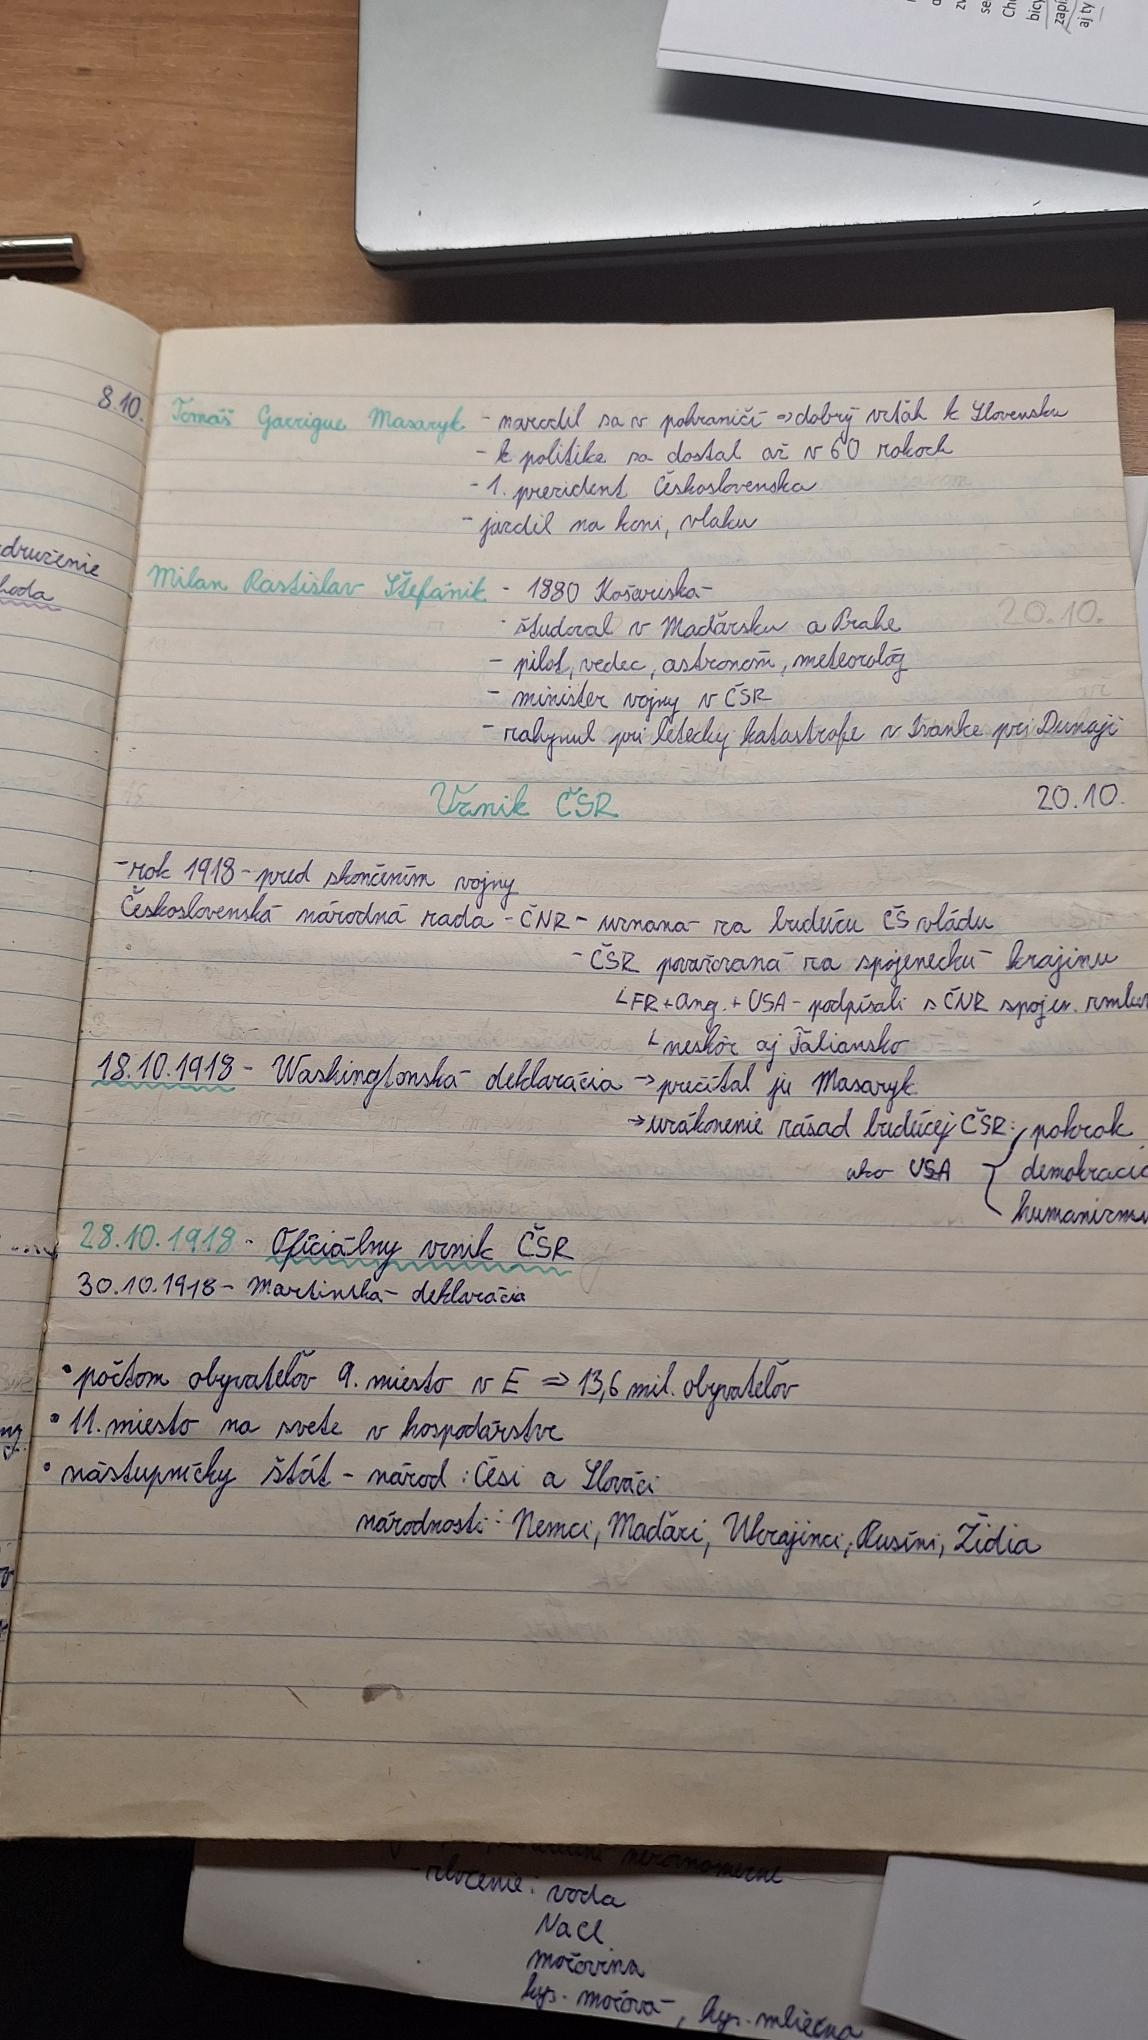 zv
se
Ch
bicy
zapí
aj ty
8.10.
Tomáš Garrigue Masaryk - narodil sa v pohraničí => dobrý vzťah k Slovensku
- k politike sa dostal až v 60 rokoch
- 1. prezident Československa
- jazdil na koni, vlaku
druženie
hoda
Milan Rastislav Štefánik - 1880 Košariská
- študoval v Maďarsku a Prahe
- pilot, vedec, astronóm, meteorológ
- minister vojny v ČSR
- zahynul pri letecky katastrofe v Ivanke pri Dunaji
20.10.
Vznik ČSR 20.10.
- rok 1918 - pred skončením vojny
Československá národná rada - ČNR - uznaná za budúcu ČS vládu
- ČSR považovaná za spojeneckú krajinu
↳ FR + ang. + USA - podpísali s ČNR spojen. zmluv
↳ neskôr aj Taliansko
18.10.1918 - Washingtonská deklarácia → prečítal ju Masaryk
→ uzákonenie zásad budúcej ČSR: pokrok
ako USA { demokracia
humanizmu
28.10.1918 - Oficiálny vznik ČSR
30.10.1918 - Martinská deklarácia
• počtom obyvateľov 9. miesto v E => 13,6 mil. obyvateľov
• 11. miesto na svete v hospodárstve
• nástupnícky štát - národ : Česi a Slováci
národnosti : Nemci, Maďari, Ukrajinci, Rusíni, Židia
- zloženie : voda
NaCl
močovina
kys. močová, kys. mliečna